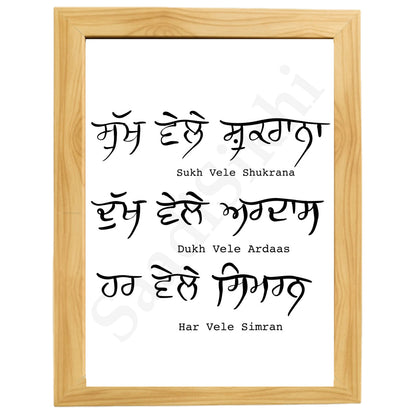 ਸੁੱਖ ਵੇਲੇ ਸ਼ੁਕਰਾਨਾ
Sukh Vele Shukrana
ਦੁੱਖ ਵੇਲੇ ਅਰਦਾਸ
Dukh Vele Ardaas
ਹਰ ਵੇਲੇ ਸਿਮਰਨ
Har Vele Simran